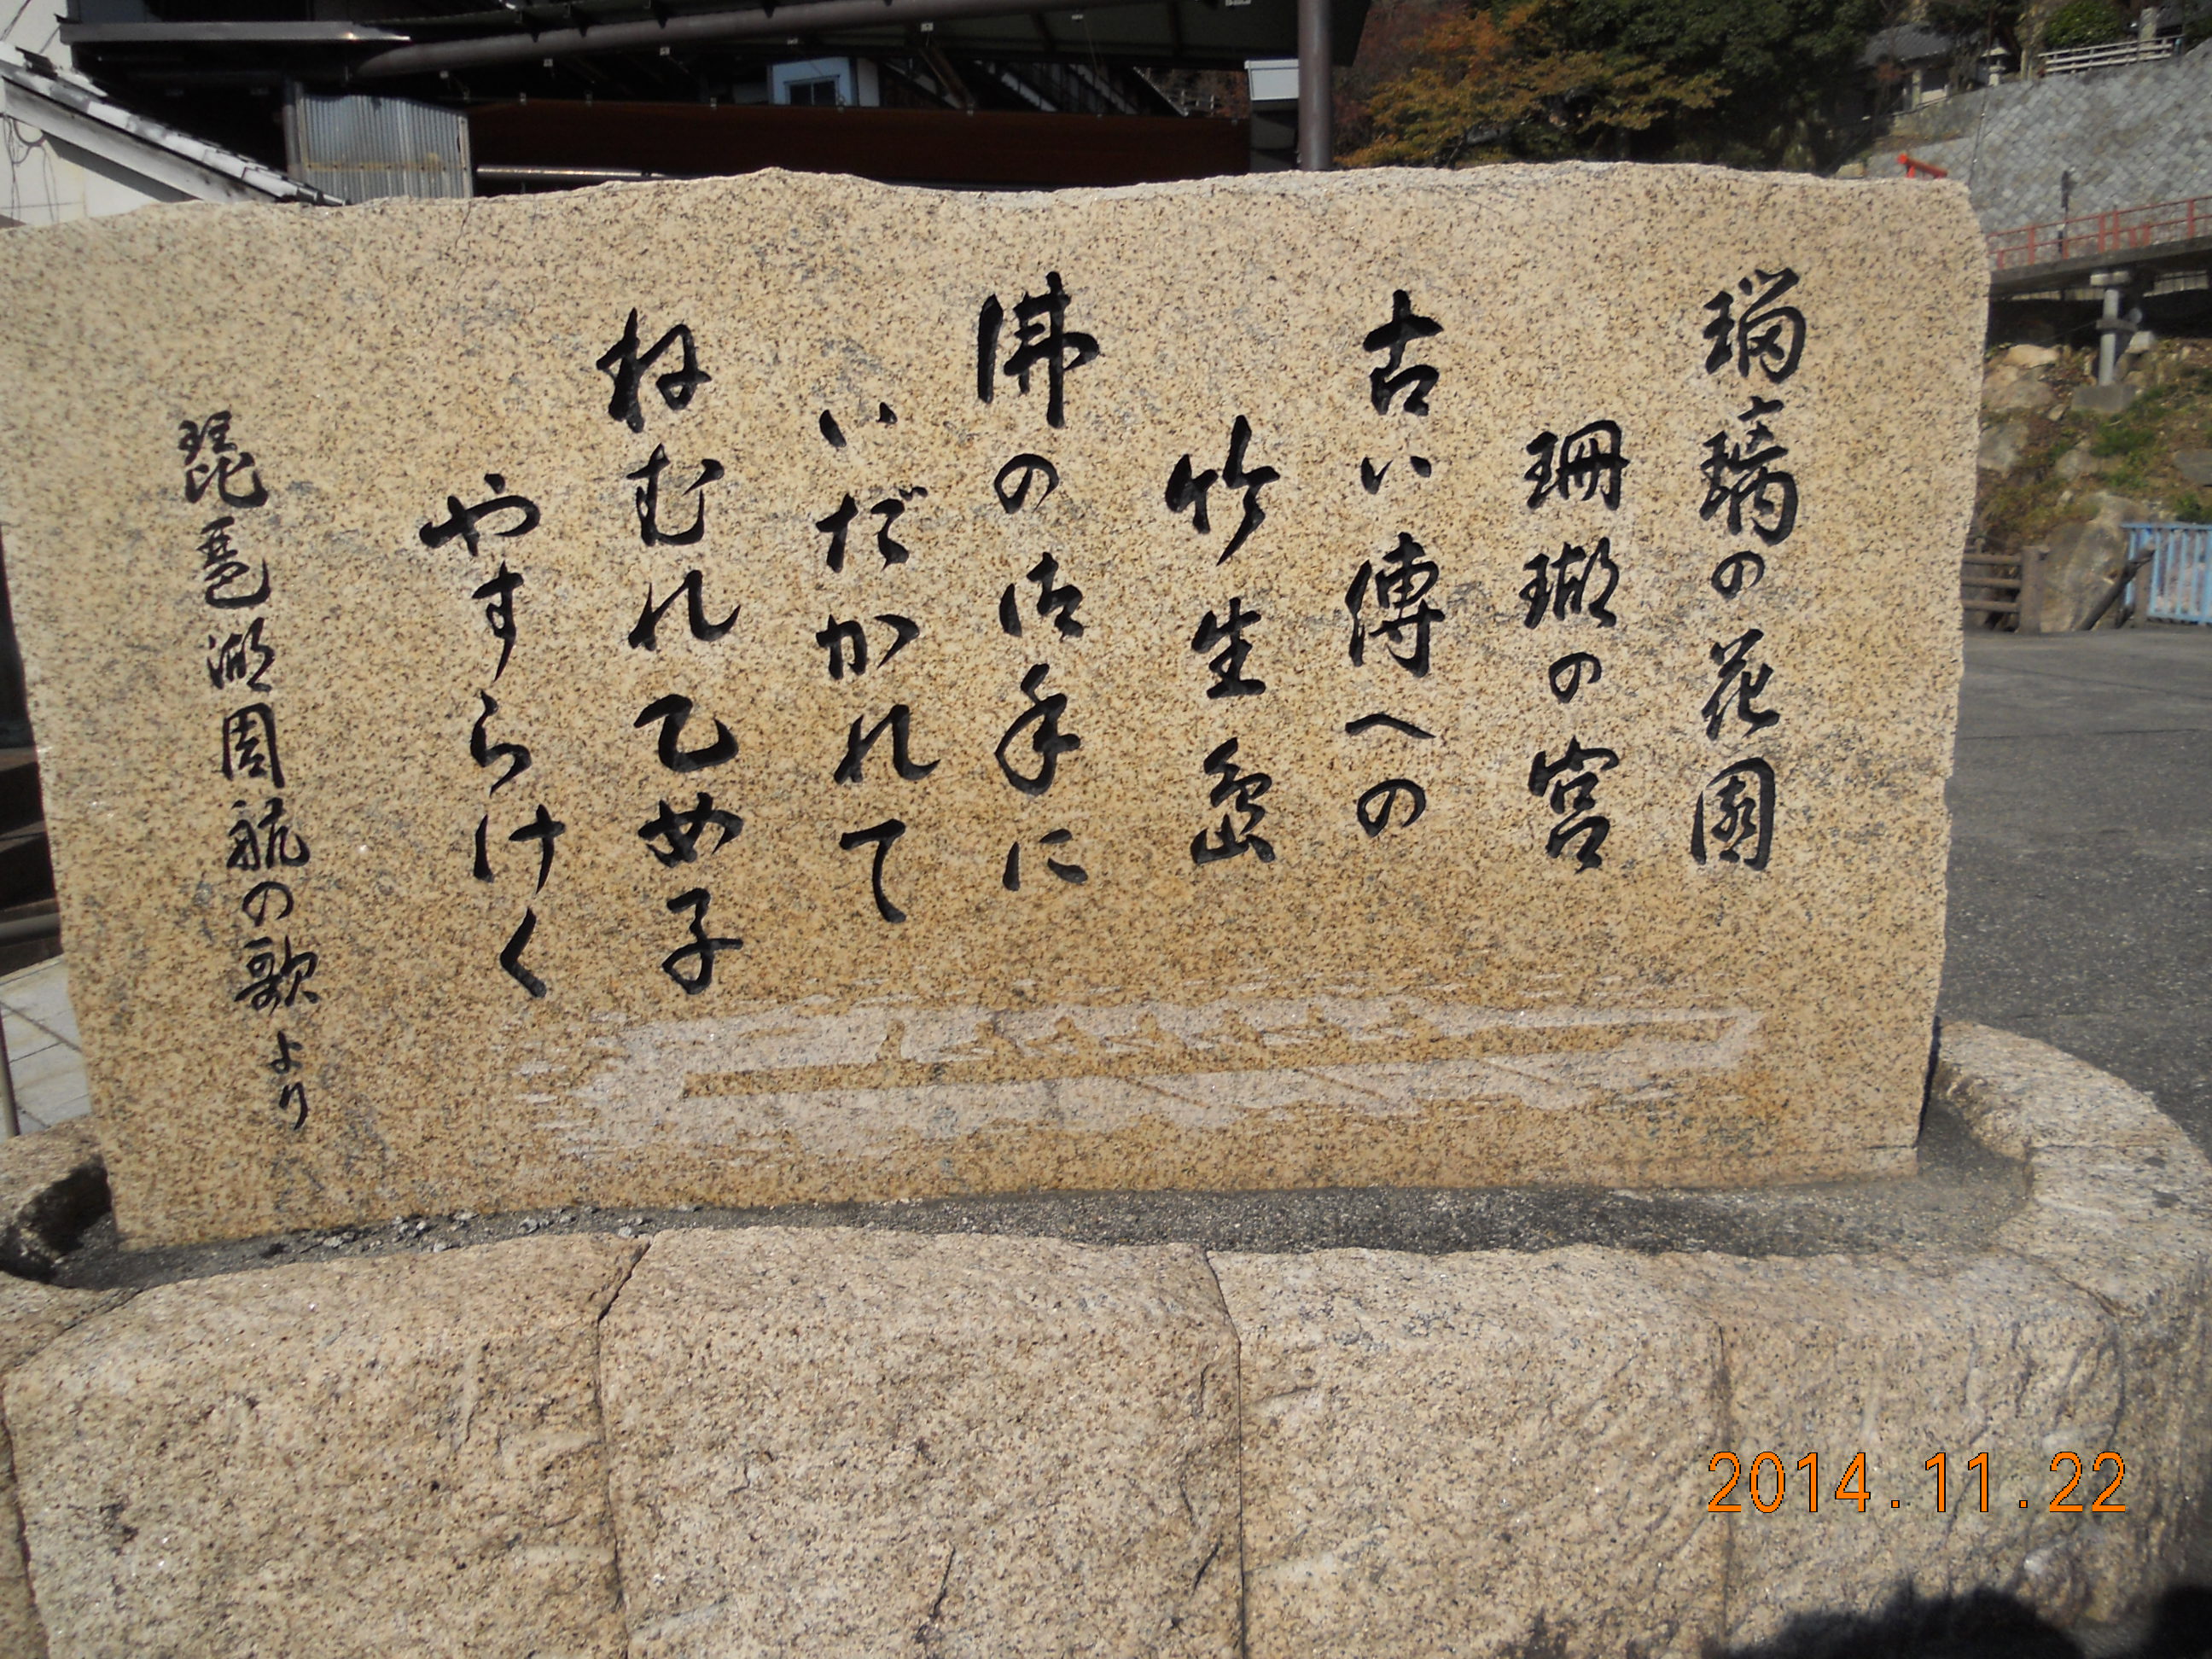 瑠璃の花園
珊瑚の宮
古い傳への
竹生島
佛の御手に
いだかれて
ねむれ乙女子
やすらけく
琵琶湖周航の歌より
2014.11.22